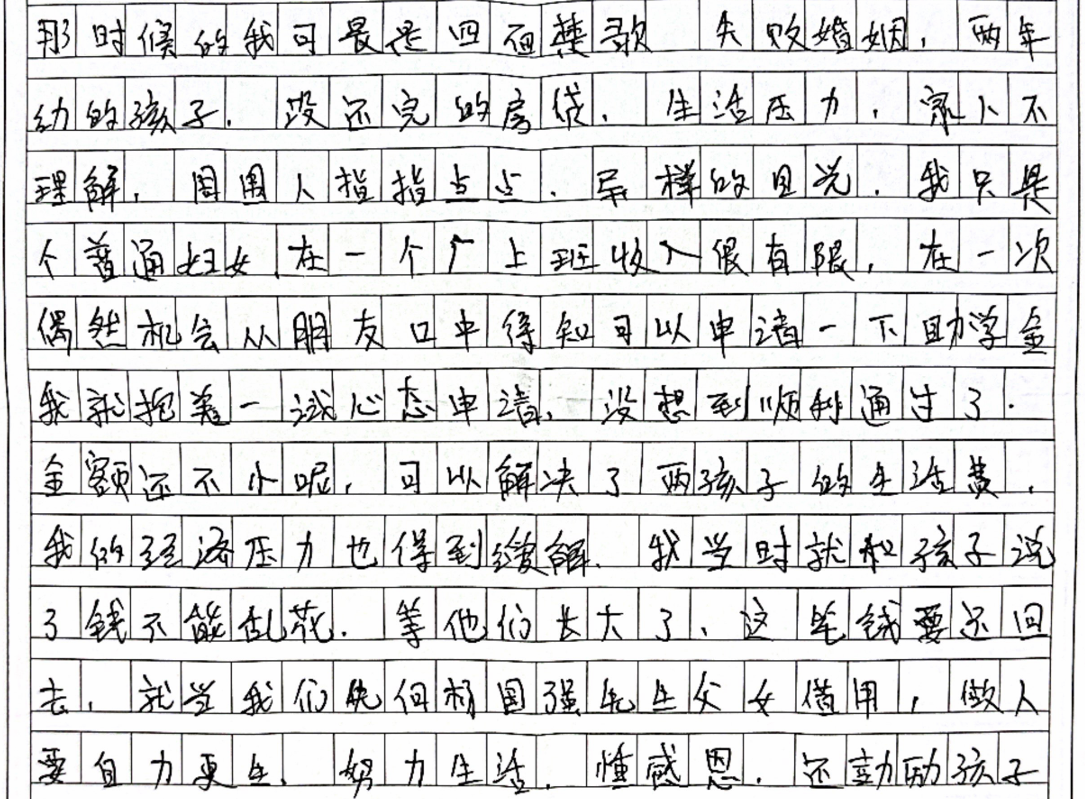 那时候的我可最是四面楚歌 失败婚姻，两年
幼的孩子．没还完的房贷．生活压力，家人不
理解，周围人指指点点．异样的目光．我只是
个普通妇女，在一个厂上班收入很有限，在一次
偶然机会从朋友口中得知可以申请一下助学金
我就抱着一试心态申请，没想到顺利通过了．
金额还不小呢，可以解决了两孩子的生活费，
我的经济压力也得到缓解．我当时就和孩子说
了钱不能乱花．等他们长大了、这笔钱要还回
去，就当我们先向杨国强先生父女借用，做人
要自力更生、努力生活．懂感恩．还鼓励孩子